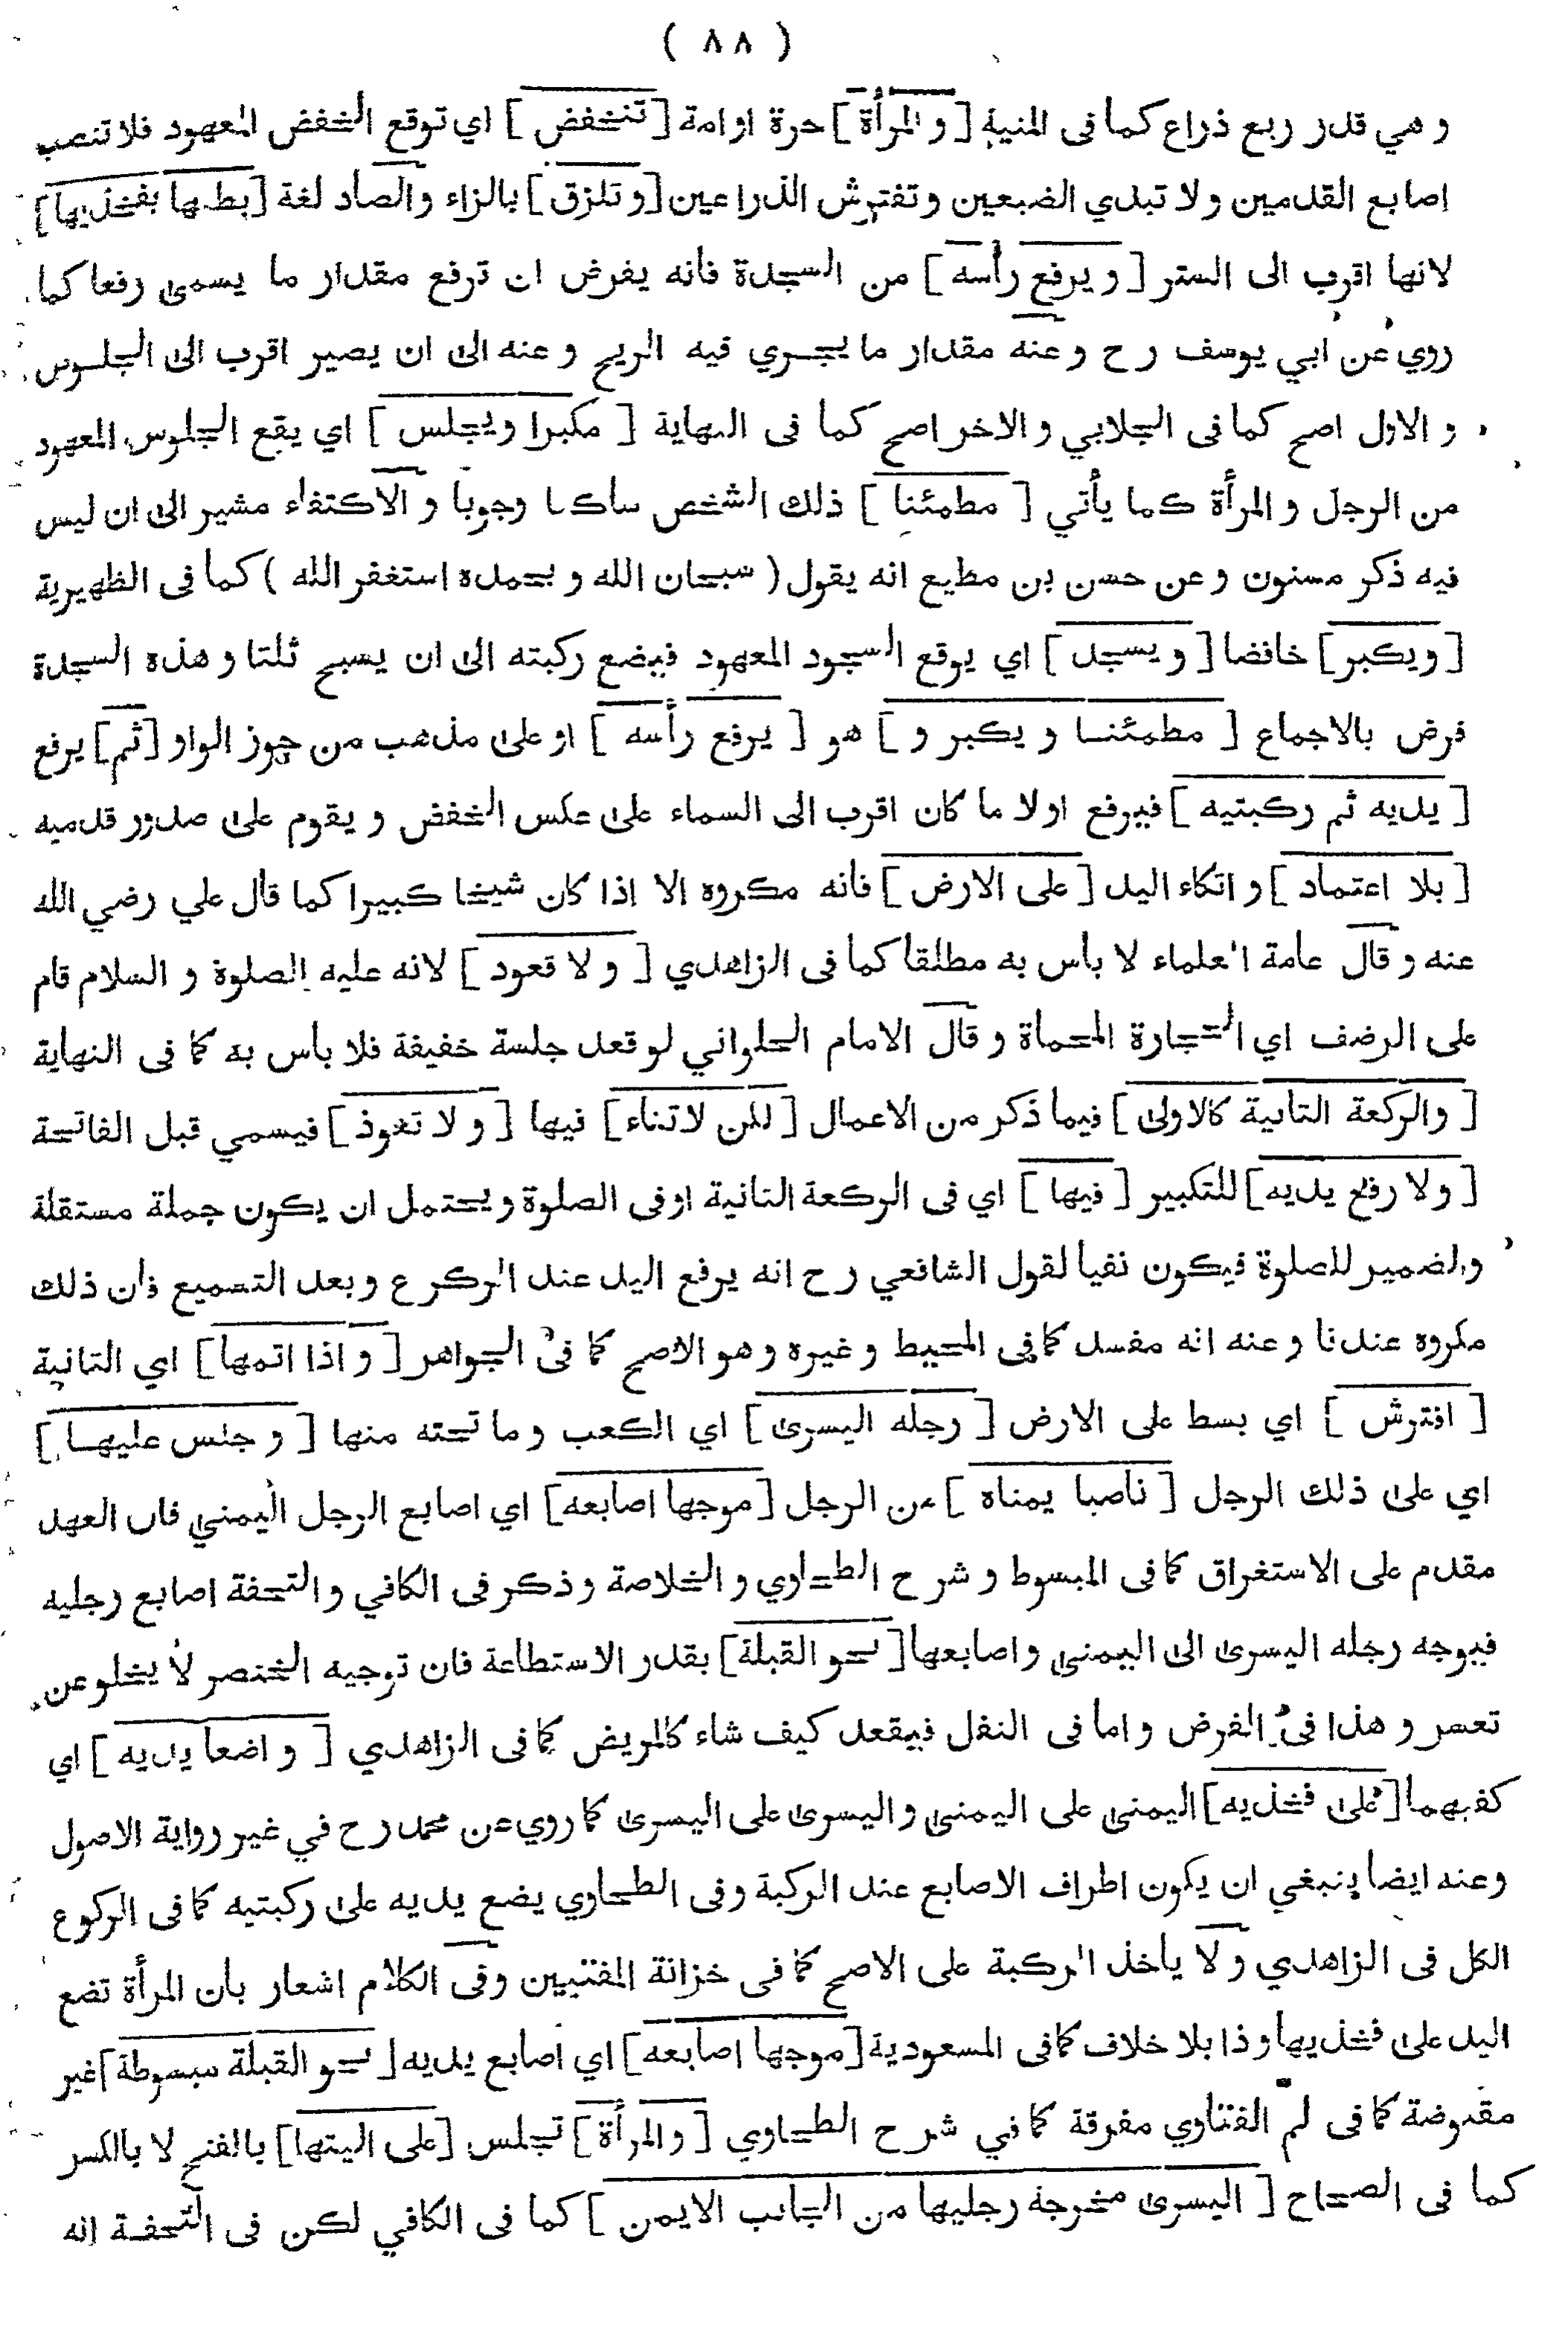 ( ٨٨ )
و هي قدر ربع ذراع كما فى المنية [ و المرأة ] حرة او امة [ تنخفض ] اي توقع الخفض المعهود فلا تنصب
اصابع القدمين و لا تبدي الضبعين و تفترش الذراعين [ و تلزق ] بالزاء و الصاد لغة [ بطنها بفخذيها ]
لانها اقرب الى الستر [ و يرفع رأسه ] من السجدة فانه يفرض ان ترفع مقدار ما يسمى رفعا كما
روي عن ابي يوسف رح و عنه مقدار ما يجري فيه الريح و عنه الى ان يصير اقرب الى الجلوس
و الاول اصح كما فى الجلابي و الاخر اصح كما فى النهاية [ مكبرا و يجلس ] اي يقع الجلوس المعهود
من الرجل و المرأة كما يأتي [ مطمئنا ] ذلك الشخص ساكنا وجوبا و الاكتفاء مشير الى ان ليس
فيه ذكر مسنون و عن حسن بن مطيع انه يقول ( سبحان الله و بحمده استغفر الله ) كما فى الظهيرية
[ ويكبر ] خافضا [ و يسجد ] اي يوقع السجود المعهود فيضع ركبته الى ان يسبح ثلثا و هذه السجدة
فرض بالاجماع [ مطمئنا و يكبر و ] هو [ يرفع رأسه ] او على مذهب من جوز الواو [ ثم ] يرفع
[ يديه ثم ركبتيه ] فيرفع اولا ما كان اقرب الى السماء على عكس الخفض و يقوم على صدور قدميه
[ بلا اعتماد ] و اتكاء اليد [ على الارض ] فانه مكروه الا اذا كان شيخا كبيرا كما قال علي رضي الله
عنه و قال عامة العلماء لا بأس به مطلقا كما فى الزاهدي [ و لا قعود ] لانه عليه الصلوة و السلام قام
على الرضف اي الحجارة المحماة و قال الامام الحلواني لو قعد جلسة خفيفة فلا بأس به كما فى النهاية
[ والركعة الثانية كالاولى ] فيما ذكر من الاعمال [ لكن لا ثناء ] فيها [ و لا تعوذ ] فيسمي قبل الفاتحة
[ ولا رفع يديه ] للتكبير [ فيها ] اي فى الركعة الثانية او فى الصلوة و يحتمل ان يكون جملة مستقلة
والضمير للصلوة فيكون نفيا لقول الشافعي رح انه يرفع اليد عند الركوع و بعد التسميع فان ذلك
مكروه عندنا و عنه انه مفسد كما فى المحيط و غيره و هو الاصح كما فى الجواهر [ و اذا اتمها ] اي الثانية
[ افترش ] اي بسط على الارض [ رجله اليسرى ] اي الكعب و ما تحته منها [ و جلس عليها ]
اي على ذلك الرجل [ ناصبا يمناه ] من الرجل [ موجها اصابعه ] اي اصابع الرجل اليمنى فان العهد
مقدم على الاستغراق كما فى المبسوط و شرح الطحاوي و الخلاصة و ذكر فى الكافي و التحفة اصابع رجليه
فيوجه رجله اليسرى الى اليمنى و اصابعها [ نحو القبلة ] بقدر الاستطاعة فان توجيه الخنصر لا يخلو عن
تعسر و هذا فى الفرض و اما فى النفل فيقعد كيف شاء كالمريض كما فى الزاهدي [ و اضعا يديه ] اي
كفيهما [ على فخذيه ] اليمنى على اليمنى و اليسرى على اليسرى كما روي عن محمد رح في غير رواية الاصول
وعنه ايضا ينبغي ان يكون اطراف الاصابع عند الركبة وفى الطحاوي يضع يديه على ركبتيه كما فى الركوع
الكل فى الزاهدي و لا يأخذ الركبة على الاصح كما فى خزانة المفتيين وفى الكلام اشعار بان المرأة تضع
اليد على فخذيها و ذا بلا خلاف كما فى المسعودية [ موجها اصابعه ] اي اصابع يديه [ نحو القبلة مبسوطة ] غير
مقبوضة كما فى لم الفتاوي مفرقة كما في شرح الطحاوي [ و المرأة ] تجلس [ على اليتها ] بالفتح لا بالكسر
كما فى الصحاح [ اليسرى مخرجة رجليها من الجانب الايمن ] كما فى الكافي لكن فى التحفة انه